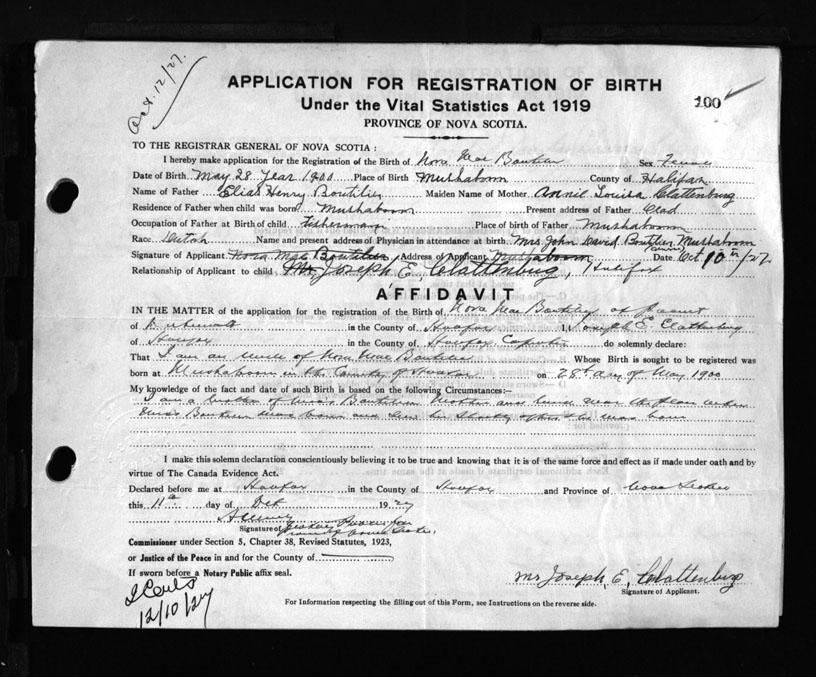 Oct. 12/27.
APPLICATION FOR REGISTRATION OF BIRTH
100
Under the Vital Statistics Act 1919
PROVINCE OF NOVA SCOTIA.
TO THE REGISTRAR GENERAL OF NOVA SCOTIA :
I hereby make application for the Registration of the Birth of Nora Mae Boutilier Sex
Date of Birth May 28 Year 1900 Place of Birth Mushaboom County of Halifax
Name of Father Elias Henry Boutilier Maiden Name of Mother Annie Louisa Clattenburg
Residence of Father when child was born Mushaboom Present address of Father
Occupation of Father at Birth of child fisherman Place of birth of Father Mushaboom
Race Dutch Name and present address of Physician in attendance at birth. Mrs. John David Boutilier Mushaboom
Signature of Applicant Nora Mae Boutilier Address of Applicant Mushaboom Date Oct 10th/27
Relationship of Applicant to child Mr Joseph E. Clattenburg, Halifax
AFFIDAVIT
IN THE MATTER of the application for the registration of the Birth of Nora Mae Boutilier of
of in the County of Halifax I, Joseph E. Clattenburg
of Halifax in the County of Halifax, Carpenter do solemnly declare:
That I am an uncle of Nora Mae Boutilier Whose Birth is sought to be registered was
born at Mushaboom in the County of Halifax on 28th day of May 1900
My knowledge of the fact and date of such Birth is based on the following Circumstances:—
I am a brother of Miss Boutilier's Mother and lived near the place when
Miss Boutilier was born and saw her shortly after she was born
I make this solemn declaration conscientiously believing it to be true and knowing that it is of the same force and effect as if made under oath and by
virtue of The Canada Evidence Act.
Declared before me at Halifax in the County of Halifax and Province of Nova Scotia
this 11th day of 1927
Signature of
Commissioner under Section 5, Chapter 38, Revised Statutes, 1923,
or Justice of the Peace in and for the County of
If sworn before a Notary Public affix seal.
Mr Joseph, E, Clattenburg
Signature of Applicant.
12/10/27
For Information respecting the filling out of this Form, see Instructions on the reverse side.